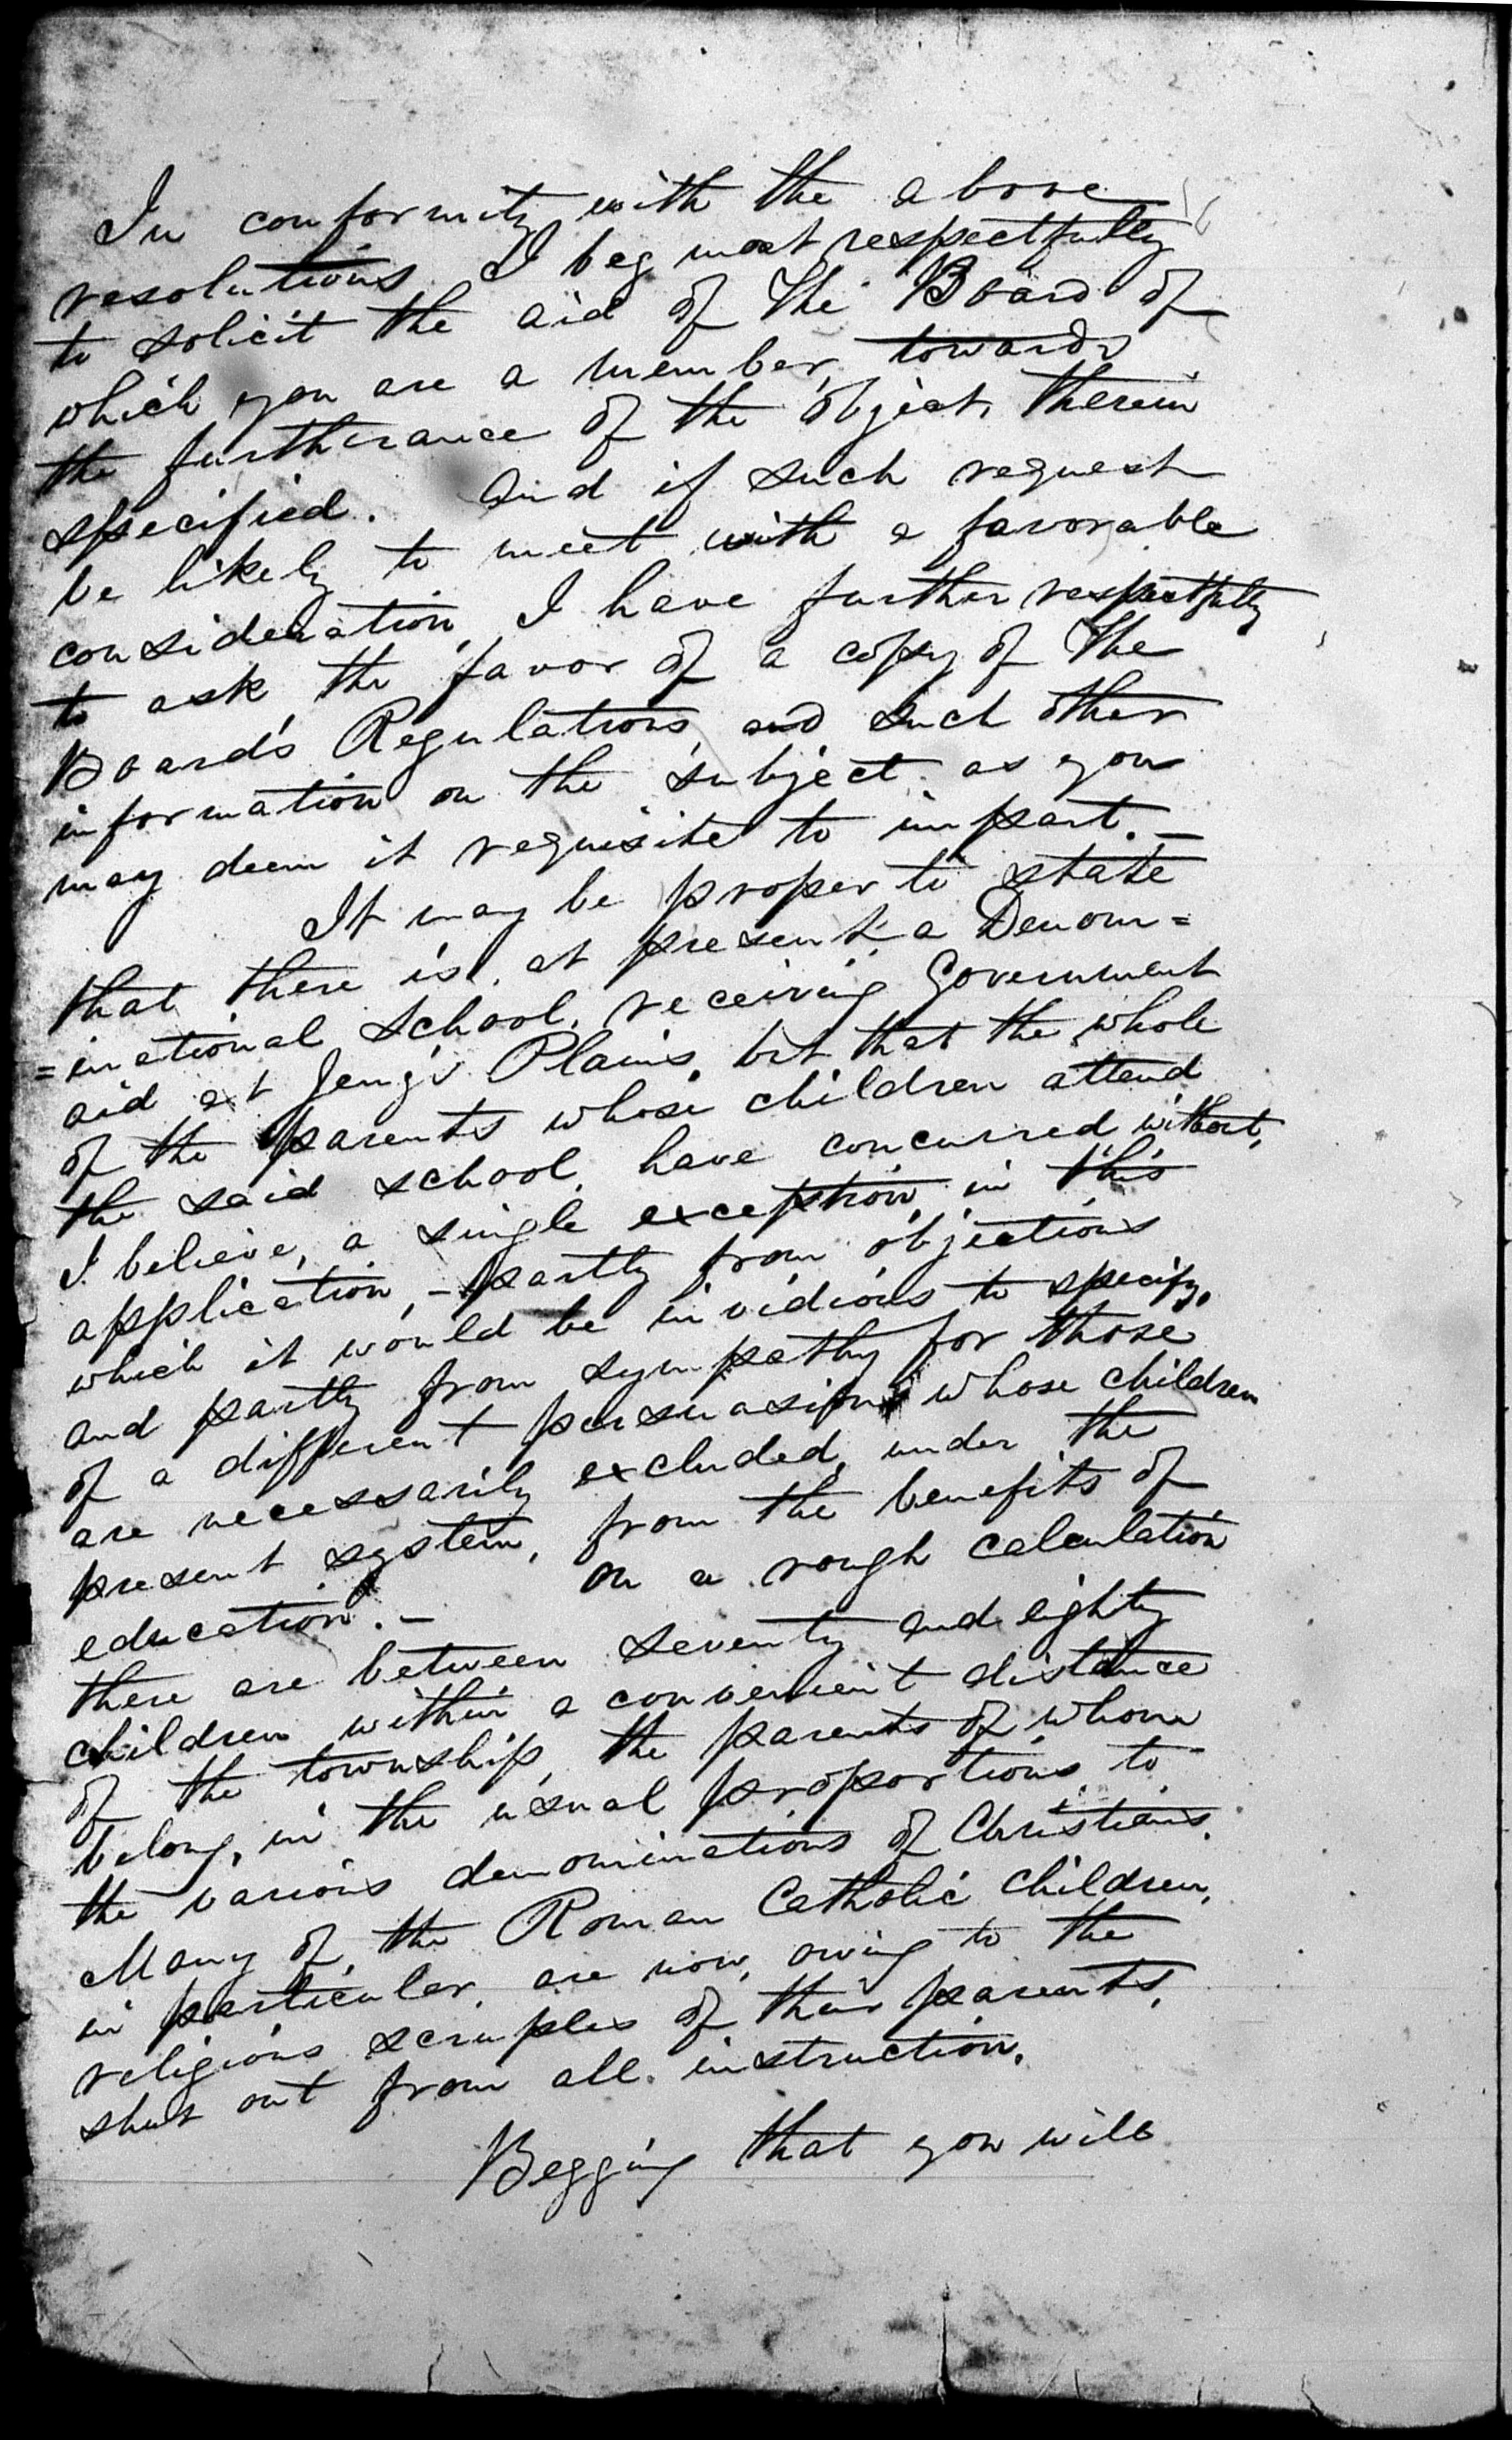 In conformity with the above
resolutions I beg most respectfully
to solicit the aid of the Board of
which you are a member, towards
the furtherance of the object therein
specified. And if such request
be likely to meet with a favorable
consideration, I have further respectfully
to ask the favor of a copy of the
Board's Regulations and such other
information on the subject as you
may deem it requisite to impart. —
It may be proper to state
that there is, at present, a Denom=
=inational School, receiving Government
aid at Jeng's Plains, but that the whole
of the parents whose children attend
the said school, have concurred without,
I believe, a single exception, in this
application, — partly from objections
which it would be invidious to specify,
and partly from sympathy for those
of a different persuasion whose children
are necessarily excluded, under the
present system, from the benefits of
education. — On a rough calculation
there are between seventy and eighty
children within a convenient distance
of the township, the parents of whom
belong, in the usual proportions to
the various denominations of Christians.
Many of the Roman Catholic children,
in particular, are now, owing to the
religious scruples of their parents,
shut out from all instruction.
Begging that you will